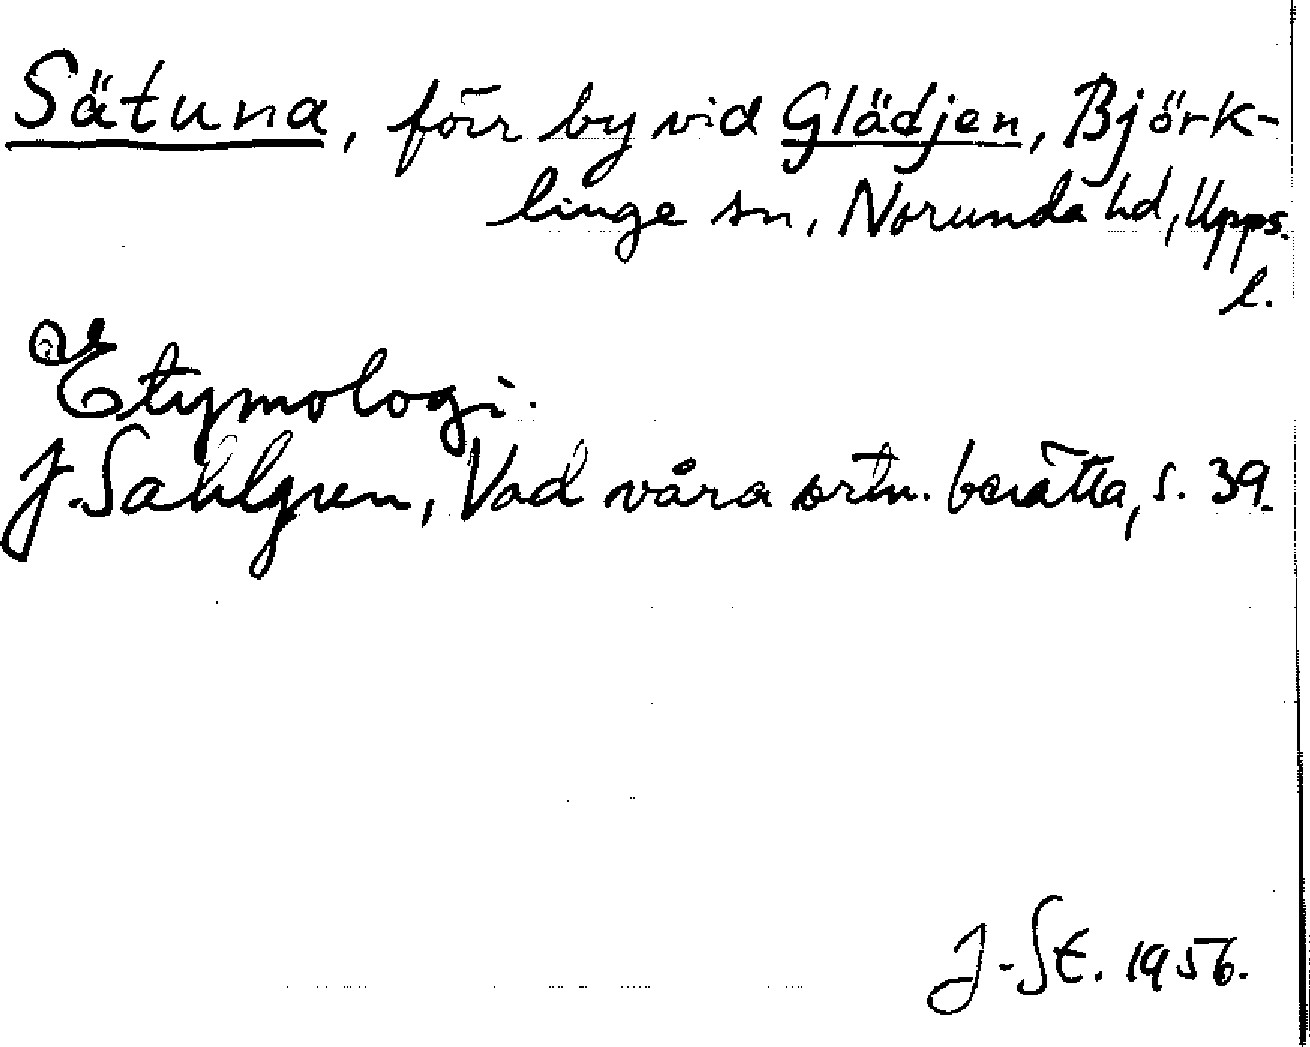 Sätuna, förr by vid Glädjen, Björk-
linge sn, Norunda hd, Upps.
l.
Etymologi.
J. Sahlgren, Vad våra ortn. berätta, s. 39.
J. St. 1956.